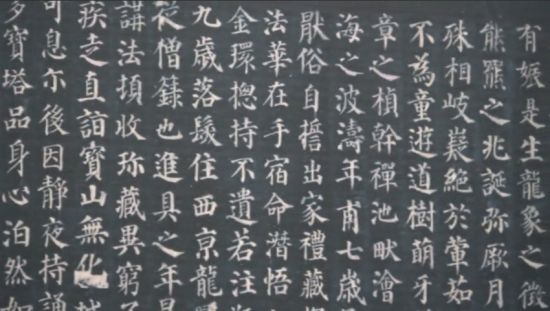 有娠是生龍象之徵
熊羆之兆誕弥厥月
殊相岐嶷絕於葷茹
不為童遊道樹萌牙
章之楨幹禪池畎澮
海之波濤年甫七歲
猒俗自誓出家禮藏
法華在手宿命潛悟
金環捴持不遺若注
九歲落髮住西京龍
僧籙也進具之年
講法頃收珎藏異窮子
疾走直詣寶山無化
可息尒後因靜夜持誦
多寶塔品身心泊然如